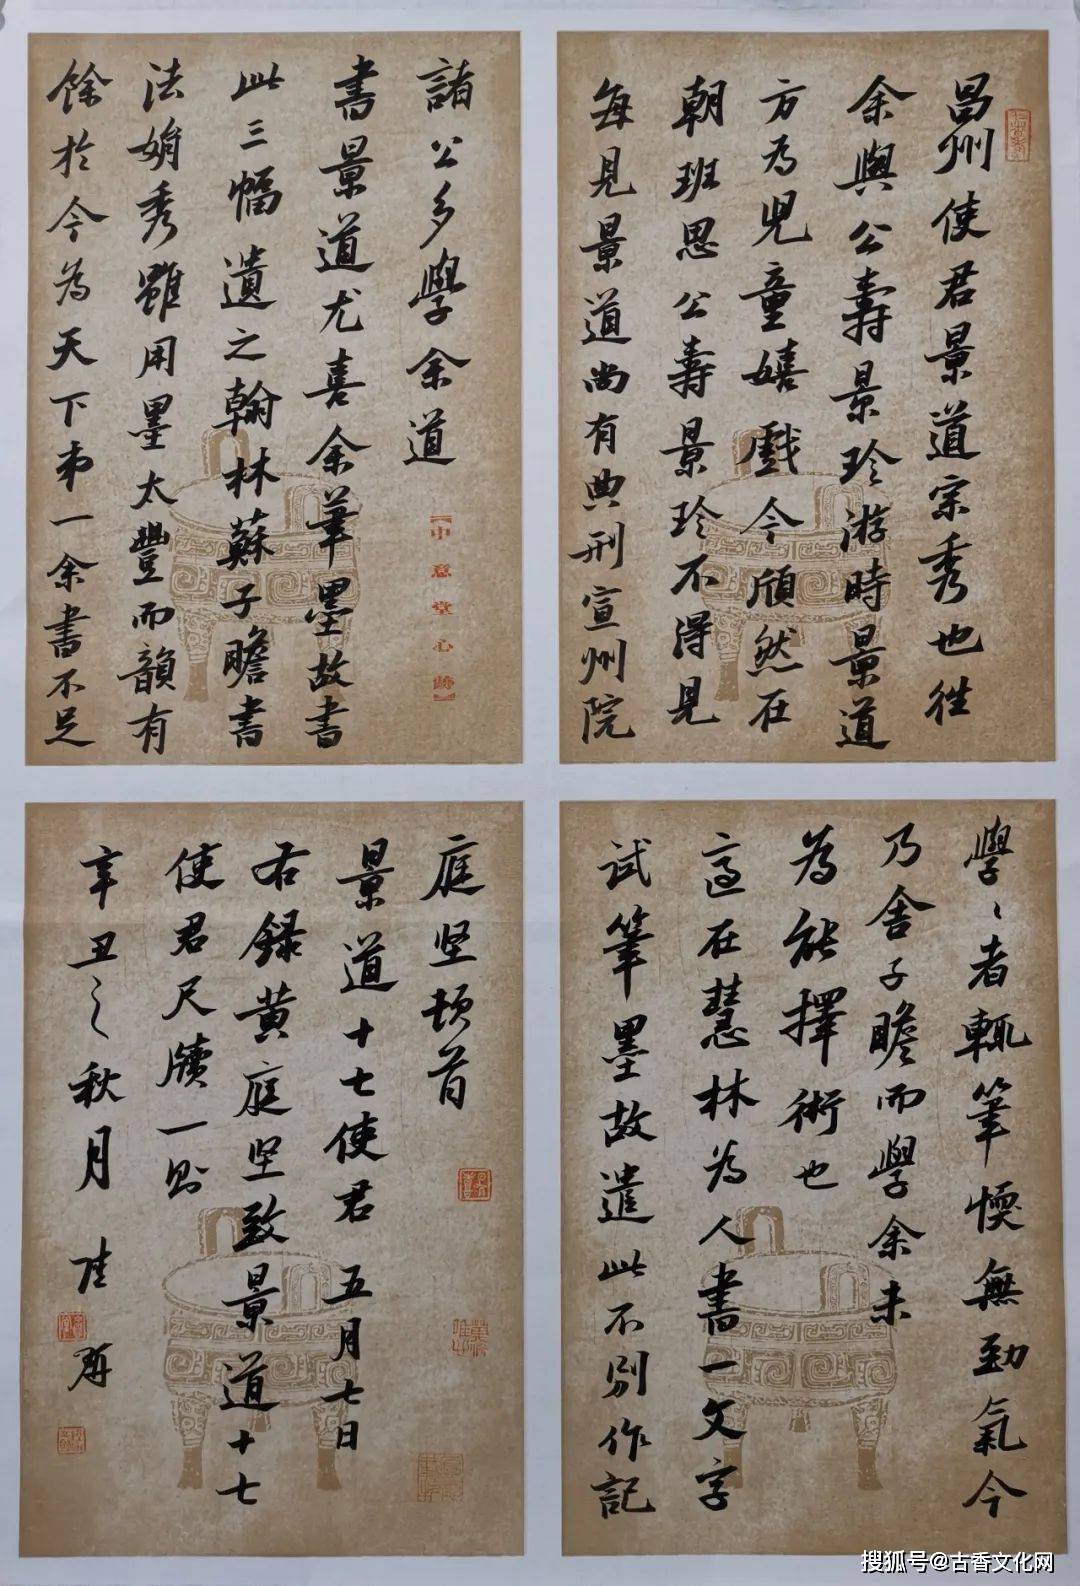 昌州使君景道宗秀也往
余與公壽景珍游時景道
方為兒童嬉戲今頎然在
朝班思公壽景珍不得見
每見景道尚有典刑宣州院
諸公多學余道
書景道尤喜余筆墨故書
此三幅遺之翰林蘇子瞻書
法娟秀雖用墨太豐而韻有
餘於今為天下第一余書不足
【中意堂心跡】
學〻者輒筆愞無勁氣今
乃舍子瞻而學余未
為能擇術也
適在慧林為人書一文字
試筆墨故遣此不別作記
庭坚頓首
景道十七使君五月七日
右録黄庭坚致景道十七
使君尺牘一則
辛丑之秋月
搜狐号@古香文化网